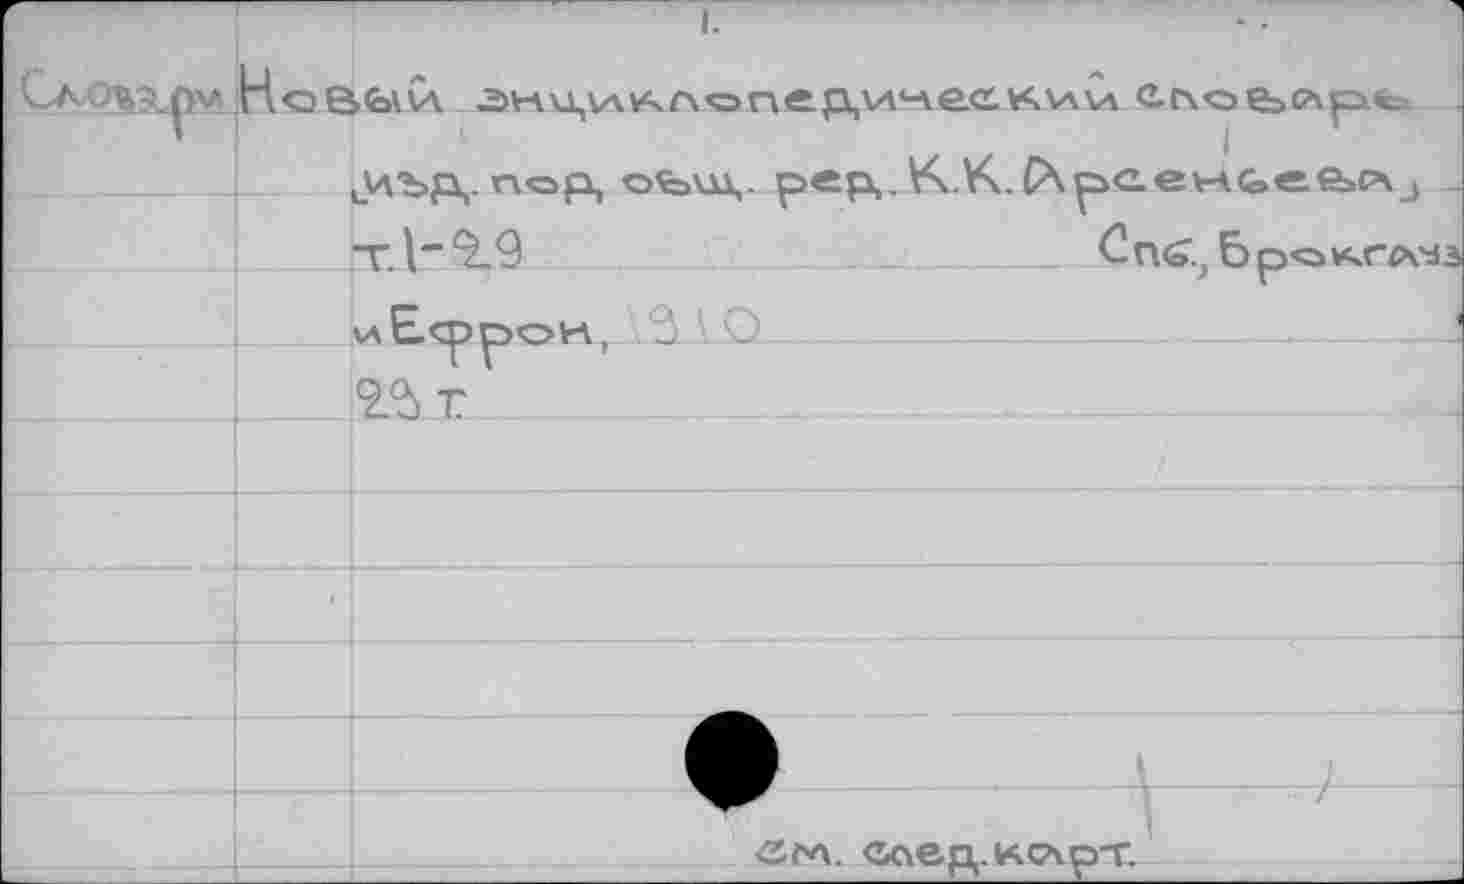 1.
Словари Новый энциклопедический словарь
изд. под общ. ред. К.К. Арсеньева,
т.1-29 Спб., Брокгауз
и Ефрон, 1910
29 т.
см. след. карт.